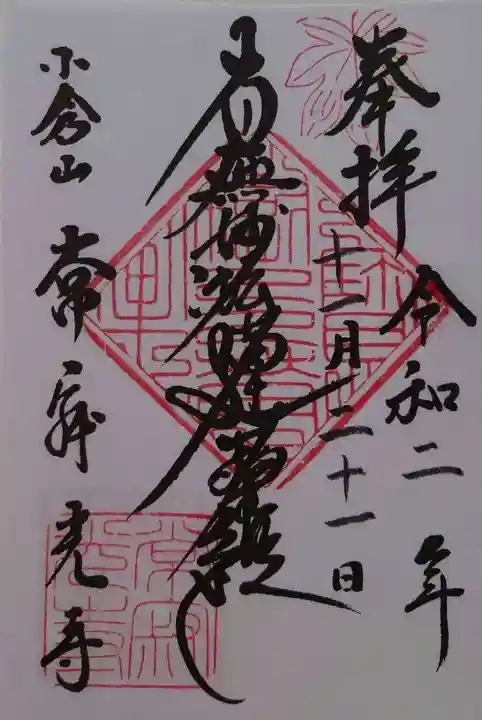 奉拝
令和二年
十一月二十一日
南無妙法蓮華経
小倉山
常寂光寺